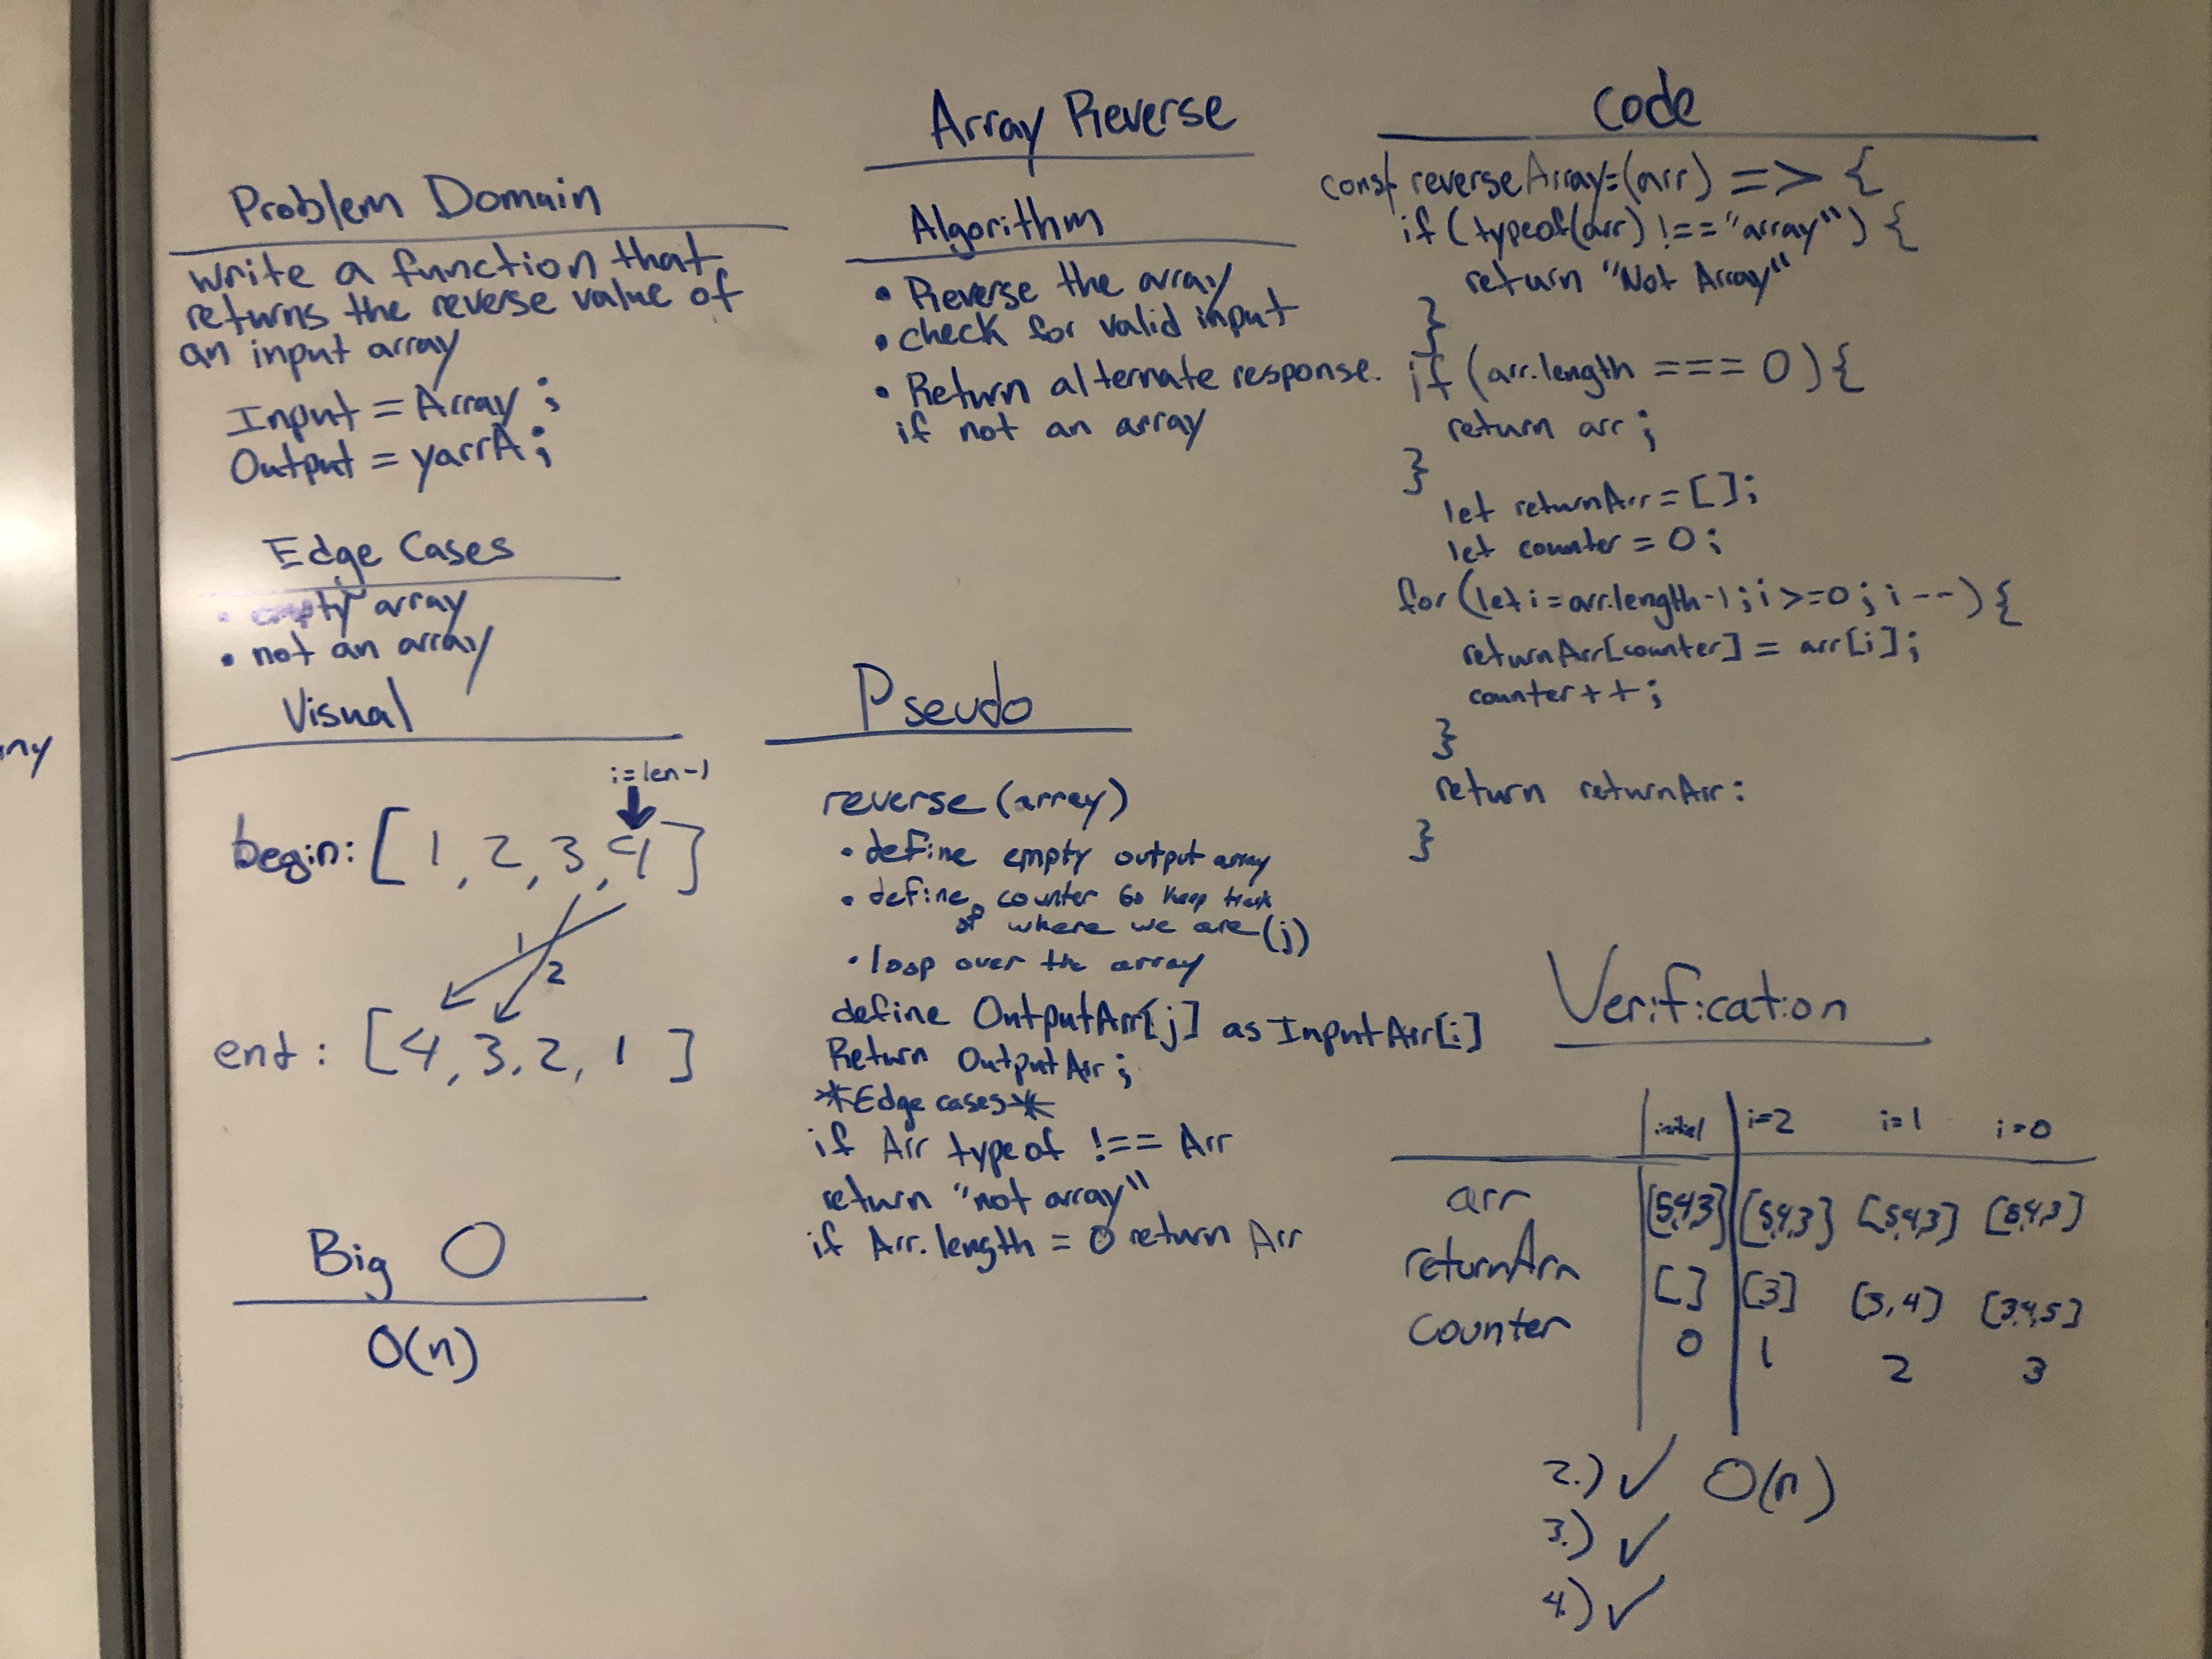 Array Reverse
Problem Domain
write a function that
returns the reverse value of
an input array
Input = Array;
Output = yarrA;
Edge Cases
• empty array
• not an array
Visual
i=len-1
begin: [1, 2, 3, 4]
1
2
end: [4, 3, 2, 1]
Big O
O(n)
Algorithm
• Reverse the array
• check for valid input
• Return alternate response.
if not an array
Pseudo
reverse (array)
• define empty output array
• define counter to keep track
of where we are (j)
• loop over the array
define OutputArr[j] as InputArr[i]
Return OutputArr;
*Edge cases*
if Arr typeof !== Arr
return "not array"
if Arr.length = 0 return Arr
Code
const reverseArray=(arr) => {
if (typeof(arr) !== "array") {
return "Not Array"
}
if (arr.length === 0) {
return arr;
}
let returnArr = [];
let counter = 0;
for (let i = arr.length-1; i >=0; i--) {
returnArr[counter] = arr[i];
counter++;
}
return returnArr:
}
Verification
initial i=2 i=1 i=0
arr [5,4,3] [5,4,3] [5,4,3] [5,4,3]
returnArr [] [3] [3,4] [3,4,5]
counter 0 1 2 3
2.) ✓ O(n)
3.) ✓
4.) ✓